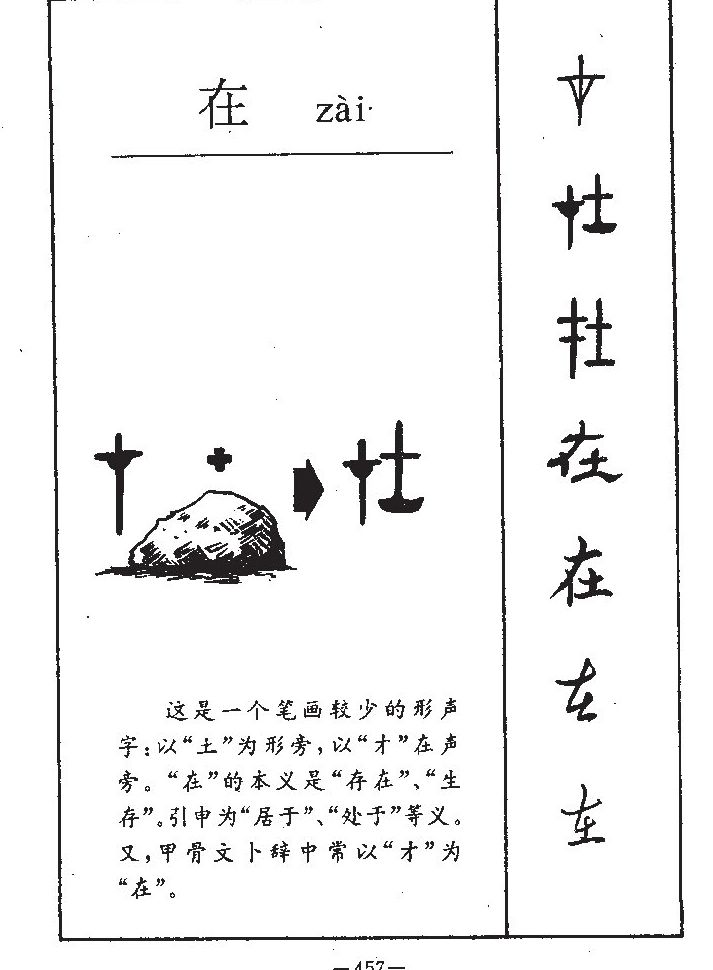 在 zài
这是一个笔画较少的形声
字：以“土”为形旁，以“才”在声
旁。“在”的本义是“存在”、“生
存”。引申为“居于”、“处于”等义。
又，甲骨文卜辞中常以“才”为
“在”。
在
在
在
在
—457—